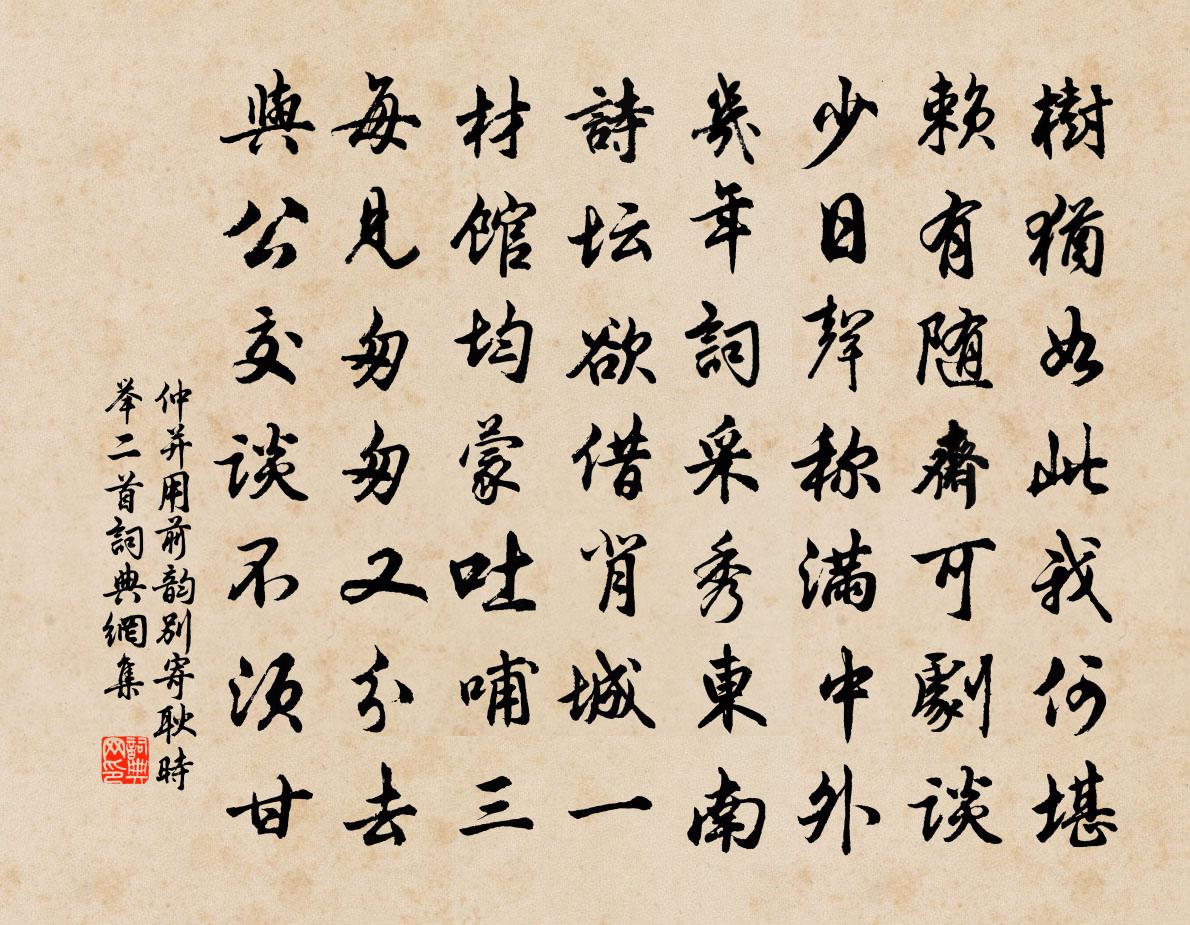 樹猶如此我何堪
賴有随齋可劇談
少日聲称滿中外
幾年詞采秀東南
詩坛欲借背城一
材館均蒙吐哺三
每見匆匆又分去
與公交談不須甘
仲并用前韵別寄耿時
举二首詞典網集
詞典网印